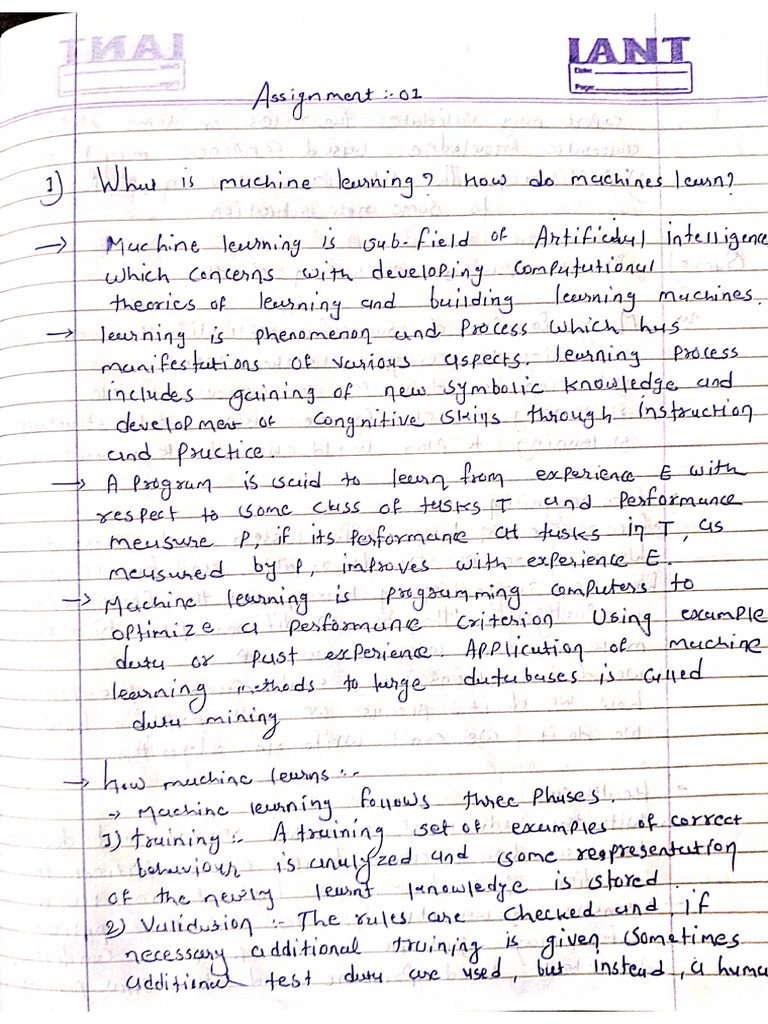 IANT
Date:
Page:
Assignment :- 01
1) What is machine learning? How do machines learn?
→ Machine learning is sub-field of Artificial intelligence
which concerns with developing computational
theories of learning and building learning machines.
→ learning is phenomenon and process which has
manifestations of various aspects. learning process
includes gaining of new symbolic knowledge and
development of congnitive skills through instruction
and practice.
→ A program is said to learn from experience E with
respect to some class of tasks T and performance
measure P, if its performance at tasks in T, as
measured by P, improves with experience E.
→ Machine learning is programming computers to
optimize a performance criterion using example
data or past experience. Application of machine
learning methods to large databases is called
data mining
→ how machine learns :-
→ Machine learning follows three phases.
1) training :- A training set of examples of correct
behaviour is analyzed and some respresentation
of the newly learnt knowledge is stored.
2) Validasion :- The rules are checked and, if
necessary additional training is given. Sometimes
additional test data are used, but instead, a huma